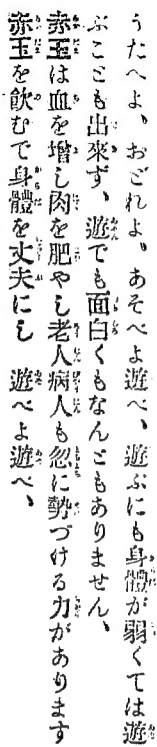 うたへよ、おどれよ、あそべよ遊べ、遊ぶにも身體が弱くては遊
ぶことも出來ず、遊でも面白くもなんともありません、
赤玉は血を增し肉を肥やし老人病人も忽に勢づける力があります
赤玉を飮むで身體を丈夫にし　遊べよ遊べ、